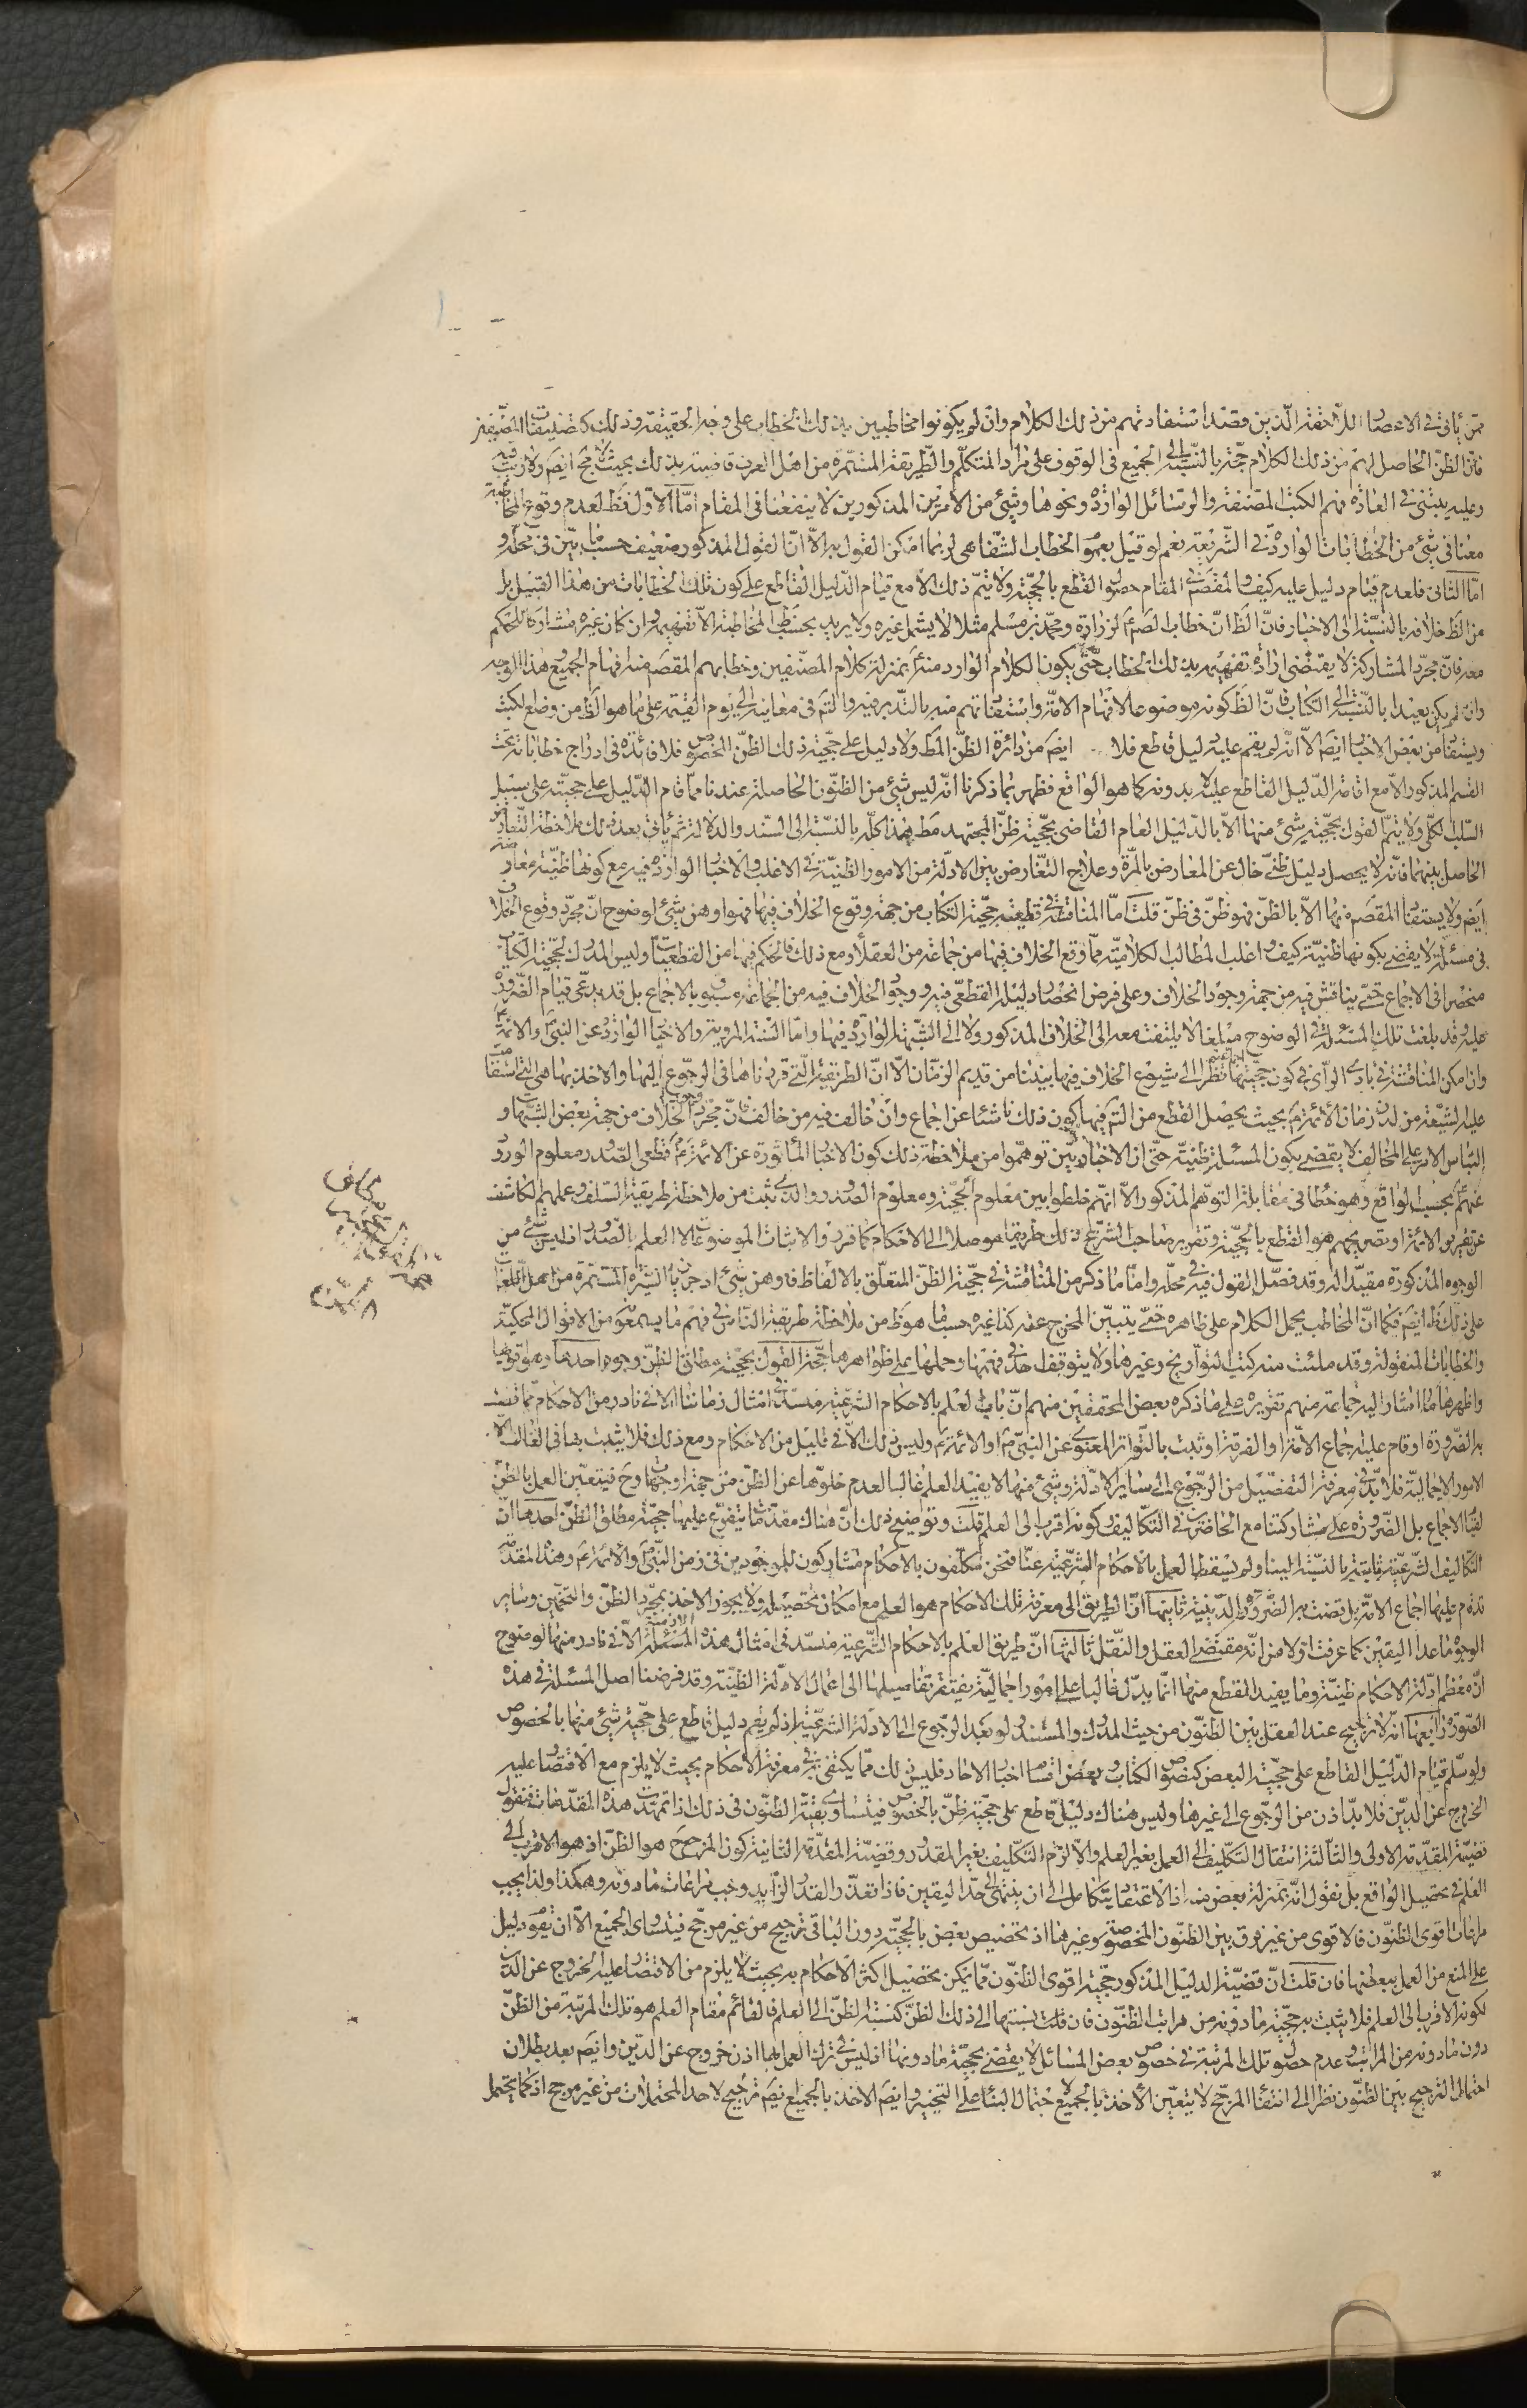 ممن يأتى فى الاعصار اللاحقة الذين قصد استفادتهم من ذلك الكلام وان لم يكونوا مخاطبين بذلك الخطاب على وجه الحقيقة وذلك كتصنيفات المصنفين
فان الظن الحاصل لهم من ذلك الكلام حجة بالنسبة الى الجميع فى الوقوف على مراد المتكلم والطريقة المستمرة من اهل العرف قاضية بذلك بحيث لا مجـ ايضم ولا ريب فيه
وعليه يبتنى فى العادة فهم الكتب المصنفة والرسائل الواردة ونحوها وشئ من الامرين المذكورين لا ينفعنا فى المقام امّا الاول فظ لعدم وقوع المخاطبة
معنا فى شئ من الخطابات الواردة فى الشريعة نعم لو قيل بعموم الخطاب الشفاهى لربما امكن القول به الّا انّ القول المذكور ضعيف حسبما بيّن فى محلّه و
امّا الثانى فلعدم قيام دليل عليه كيف والمقصود فى المقام حصول القطع بالحجيّة ولا يتمّ ذلك الّا مع قيام الدّليل القاطع على كون تلك الخطابات من هذا القبيل بل
من الظ خلافه بالنسبة الى الاخبار فانّ الظ انّ خطاب الصّم لزرارة ومحمّد بن مسلم مثلا لا يشمل غيره ولا يريد بحسب ظ المخاطبة الّا تفهيمه وان كان غيره مشاركا له فى الحكم
معه فانّ مجرّد المشاركة لا يقتضى ارادة تفهيمه بذلك الخطاب حتّى يكون الكلام الوارد منه بمنزلة كلام المصنّفين وخطابهم المقصم منه افهام الجميع وهذا الوجه
وان لم يكن بعيدا بالنسبة الى الكتاب فانّ الظ كونه موضوعا لافهام الامّة واستفادتهم منه بالتّدبر فيه والتّم فى معانيه الى يوم القيمة على ما هو الظ من وضع الكتب
ويستفاد من بعض الاخبار ايضم الّا انّه لم يقم عليه دليل قاطع فلا ايضم من دائرة الظنّ المط ولا دليل على حجّية ذلك الظنّ المخصوص فلا فائدة فى ادراج خطاباته تحت
القسم المذكور الّا مع اقامة الدّليل القاطع عليه لا بدونه كما هو الواقع فظهر بما ذكرنا انّه ليس شئ من الظنّون الحاصلة عندنا ممّا قام الدّليل على حجيّته على سبيل
السّلب الكلّى ولا يتمّ القول بحجيّة شئ منها الّا بالدّليل العام القاضى بحجّية ظنّ المجتهد مط هذا كلّه بالنسبة الى السّند والدّلالة ثم يأتى بعد ذلك ملاحظة التعارض
الحاصل بينهما فانّه لا يحصل دليل ظنّى خال عن المعارض بالمرّة وعلاج التّعارض بين الادلّة من الامور الظنيّة فى الاغلب والاخبار الواردة فيه مع كونها ظنّية متعارضة
ايضم ولا يستفاد المقصم منها الّا بالظنّ فهو ظنّ فى ظنّ قلت امّا المناقشة فى قطعيّة حجيّة الكتاب من جهة وقوع الخلاف فيها فهو اوهن شئ لوضوح انّ مجرّد وقوع الخلاف
فى مسئلة لا يقضى بكونها ظنيّة كيف واغلب المطالب الكلاميّة ممّا وقع الخلاف فيها من جماعة من العقلاء ومع ذلك فالحكم فيها من القطعيّات وليس المدرك لحجّية الكتاب
منحصرا فى الاجماع حتّى يناقش فيه من جهة وجود الخلاف وعلى فرض انحصار دليله القطعى فيه ووجود الخلاف فيه من الجماعة مسبوق بالاجماع بل قد يدعى قيام الضّرورة
عليه وقد بلغت تلك المسئلة فى الوضوح مبلغا لا يلتفت معه الى الخلاف المذكور ولا الى الشبهة الواردة فيها وامّا السّنة المروية والاخبار الواردة عن النبىّ والائمة
وان امكن المناقشة فى بادى الرأى فى كون حجيّتها نظرا الى شيوع الخلاف فيها بيننا من قديم الزمّان الّا انّ الطريقة الّتى قررناها فى الرجوع اليها والاخذ بها هى الّتى استقامت
عليه الشيعة من لدن زمان الائمّة بحيث يحصل القطع من التّم فيها كون ذلك ناشئا عن اجماع وان خالف فيه من خالف فانّ مجرّد الخلاف من جهة بعض الشبهات و
التباس الامر على المخالف لا يقضى بكون المسئلة ظنيّة حتّى ان الاخباريّين توهّموا من ملاحظة ذلك كون الاخبار المأثورة عن الائمة قطعى الصّدور معلوم الورود
عنهم بحسب الواقع وهو خطأ فى مقابلة التوهّم المذكور الّا انّهم خلطوا بين معلوم الحجيّة ومعلوم الصّدور والّذى يثبت من ملاحظة طريقة السّلف وعلمهم الكاشف
عن تقرير الائمة او تصريحهم هو القطع بالحجيّة وتقرير صاحب الشريعة ذلك طريقا موصلا الى الاحكام كما قرر والاثبات الموضوعات لا العلم بالصّدور اذ ليس شئ من
الوجوه المذكورة مفيدا له وقد فصّل القول فيه فى محلّه وامّا ما ذكر من المناقشة فى حجّية الظنّ المتعلّق بالالفاظ فاوهن شئ اذ جريان السّيرة المستمرة من اهل اللغات
على ذلك ظ ايضم فكما انّ المخاطب يحمل الكلام على ظاهره حتّى يتبيّن المخرج عنه كذا غيره حسبما هو ظ من ملاحظة طريقة النّاس فى فهم ما يسمعوه من الاقوال المحكيّة
والخطابات المنقولة وقد ملئت منه كتب التّواريخ وغيرها ولا يتوقف احد فى فهمها وحملها على ظواهرها حجّة القول بحجّية مطلق الظنّ وجوه احدها وهو اقويها
واظهرها ما اشار اليه جماعة منهم تقريره على ما ذكره بعض المحققين منهم انّ باب العلم بالاحكام الشرعية منسدّ فى امثال زماننا الّا فى نادر من الاحكام ممّا قضت
به الضّرورة او قام عليه اجماع الامّة او الفرقة او ثبت بالتّواتر المعنوى عن النبىّ او الائمّة وليس ذلك الّا فى قليل من الاحكام ومع ذلك فلا يثبت بها فى الغالب الّا
الامور الاجماليّة فلا بدّ فى معرفة التفصيل من الرّجوع الى سائر الادلّة وشئ منها لا يفيد العلم غالبا لعدم خلوّها عن الظنّ من جهة او جهات وح فيتعيّن العمل بالظنّ
لقيام الاجماع بل الضّرورة على مشاركتنا مع الحاضرين فى التكاليف وكونه اقرب الى العلم قلت وتوضيح ذلك انّ هناك مقدّمات يتفرّع عليها حجيّة مطلق الظنّ احدها انّ
التّكاليف الشرعيّة ثابتة بالنسبة الينا ولم يسقط العمل بالاحكام الشّرعيّة عنّا فنحن مكلّفون بالاحكام مشاركون للموجودين فى زمن النّبىّ والائمّة وهذه المقدّمة
قد قام عليها اجماع الامّة بل قضت به الضّرورة الدّينية ثانيها انّ الطريق الى معرفة تلك الاحكام هو العلم مع امكان تحصيله ولا يجوز الاخذ بمجرّد الظنّ والتخمين وسائر
الوجوه ما عدا اليقين كما عرفت اولا من انّه مقتضى العقل والنّقل ثالثها انّ طريق العلم بالاحكام الشّرعية منسدّ فى امثال هذه الازمنة الّا فى نادر منها لوضوح
انّ معظم ادلّة الاحكام ظنيّة وما يفيد القطع منها انّما يدلّ غالبا على امور اجماليّة يفتقر تفاصيلها الى اعمال الادلّة الظنيّة وقد فرضنا اصل المسئلة فى هذه
الصّورة رابعها انّه لا ترجيح عند العقل بين الظنّون من حيث المدرك والمستند ولو بعد الرجوع الى الادلّة الشرعيّة اذ لم يقم دليل قاطع على حجّية شئ منها بالخصوص
ولو سلّم قيام الدّليل القاطع على حجّية البعض كنصوص الكتاب وبعض اقسام اخبار الآحاد فليس ذلك ممّا يكتفى به فى معرفة الاحكام بحيث لا يلزم مع الاقتصار عليه
الخروج عن الدّين فلا بدّ اذن من الرّجوع الى غيرها وليس هناك دليل قاطع على حجّية ظنّ بالخصوص فيتساوى بقيّة الظنّون فى ذلك اذا تمهّدت هذه المقدّمات فنقول
قضيّة المقدّمة الاولى والثّالثة انتقال التكليف الى العمل بغير العلم والّا لزم التّكليف بغير المقدور وقضيّة المقدّمة الثانية كون المرجح هو الظنّ اذ هو الاقرب الى
العلم فى تحصيل الواقع بل نقول انّه بمنزلة بعض منه اذ الاعتقاد يتكامل الى ان ينتهى الى حدّ اليقين فاذا تعذّر القدر الزّايد وجب مراعات ما دونه وهكذا ولذا يجب
مراعات اقوى الظنّون فالاقوى من غير فرق بين الظنّون المخصوصة وغيرها اذ تخصيص بعض بالحجيّة دون الباقى ترجيح من غير مرجّح فيتساوى الجميع الّا ان يقوم دليل
على المنع من العمل ببعضها فان قلت انّ قضيّة الدليل المذكور حجيّة اقوى الظنّون ممّا يمكن تحصيل اكثر الاحكام به بحيث لا يلزم من الاقتصار عليه الخروج عن الدّين
لكونه الاقرب الى العلم فلا يثبت به حجّية ما دونه من مراتب الظنّون فان قلت نسبتها الى ذلك الظنّ كنسبة الظنّ الى العلم فالقائم مقام العلم هو تلك المرتبة من الظنّ
دون ما دونه من المراتب وعدم حصول تلك المرتبة فى خصوص بعض المسائل لا يقضى بحجيّة ما دونها اذ ليس فى ترك العمل بها اذن خروج عن الدّين وايضم بعد بطلان
احتمال الترجيح بين الظنّون نظرا الى انتفاء المرجّح لا يتعيّن الاخذ بالجميع لاحتمال البناء على التخيير وايضم الاخذ بالجميع ايضم ترجيح لاحد المحتملات من غير مرجح اذ كما يحتمل